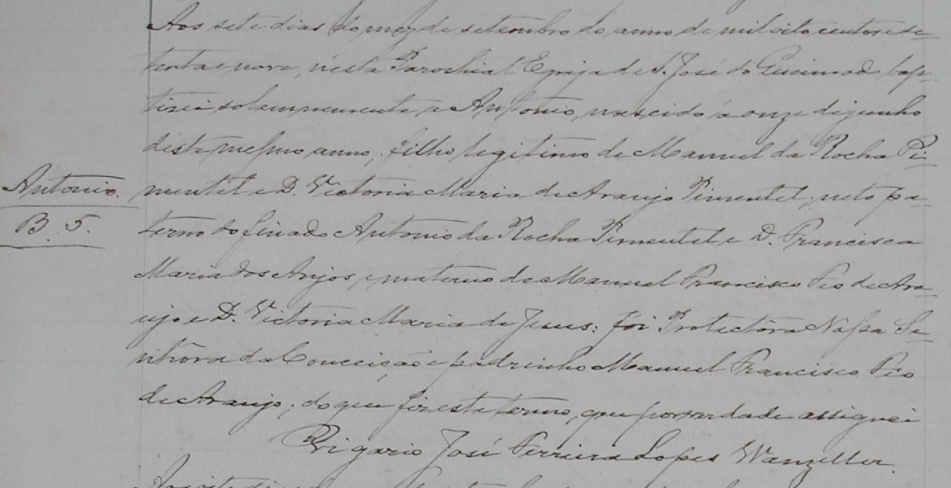 Aos sete dias do mez de setembro do anno de mil oito centos e se-
tenta e nove, nésta Parochial Egreja de S. José do Gurimad, bap-
tizei solemnemente a Antonio, nascido á onze de junho
déste mesmo anno, filho legitimo de Manuel da Rocha Pi-
mentel e D. Victoria Maria de Araujo Pimentel; neto pa-
terno do finado Antonio da Rocha Pimentel e D. Francisca
Maria dos Anjos, e materno de Manuel Francisco Pio de Ara-
Antonio.
B. 5.
ujo e D. Victoria Maria de Jesus; foi Protectôra Nossa Se-
nhôra da Conceição e padrinho Manuel Francisco Pio
de Araujo; do que fiz este termo, que por verdade assignei
Vigario José Ferreira Lopes Wanzeller.